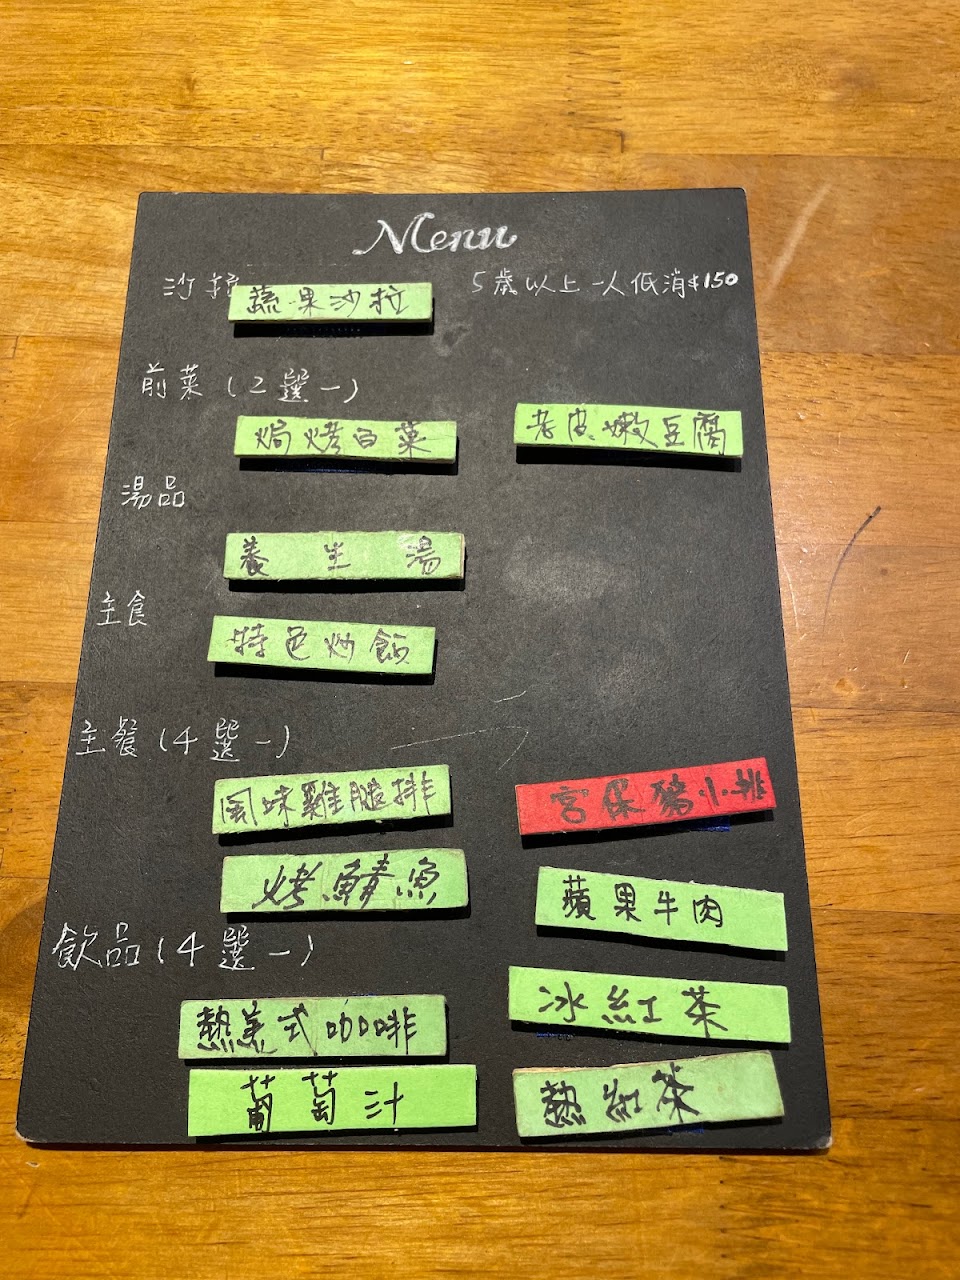 Menu
沙拉 蔬果沙拉 5歲以上一人低消$150
前菜(2選一)
焗烤白菜 老皮嫩豆腐
湯品
養生湯
主食
特色炒飯
主餐(4選一)
風味雞腿排 宮保豬小排
烤鯖魚 蘋果牛肉
飲品(4選一)
熱美式咖啡 冰紅茶
葡萄汁 熱紅茶